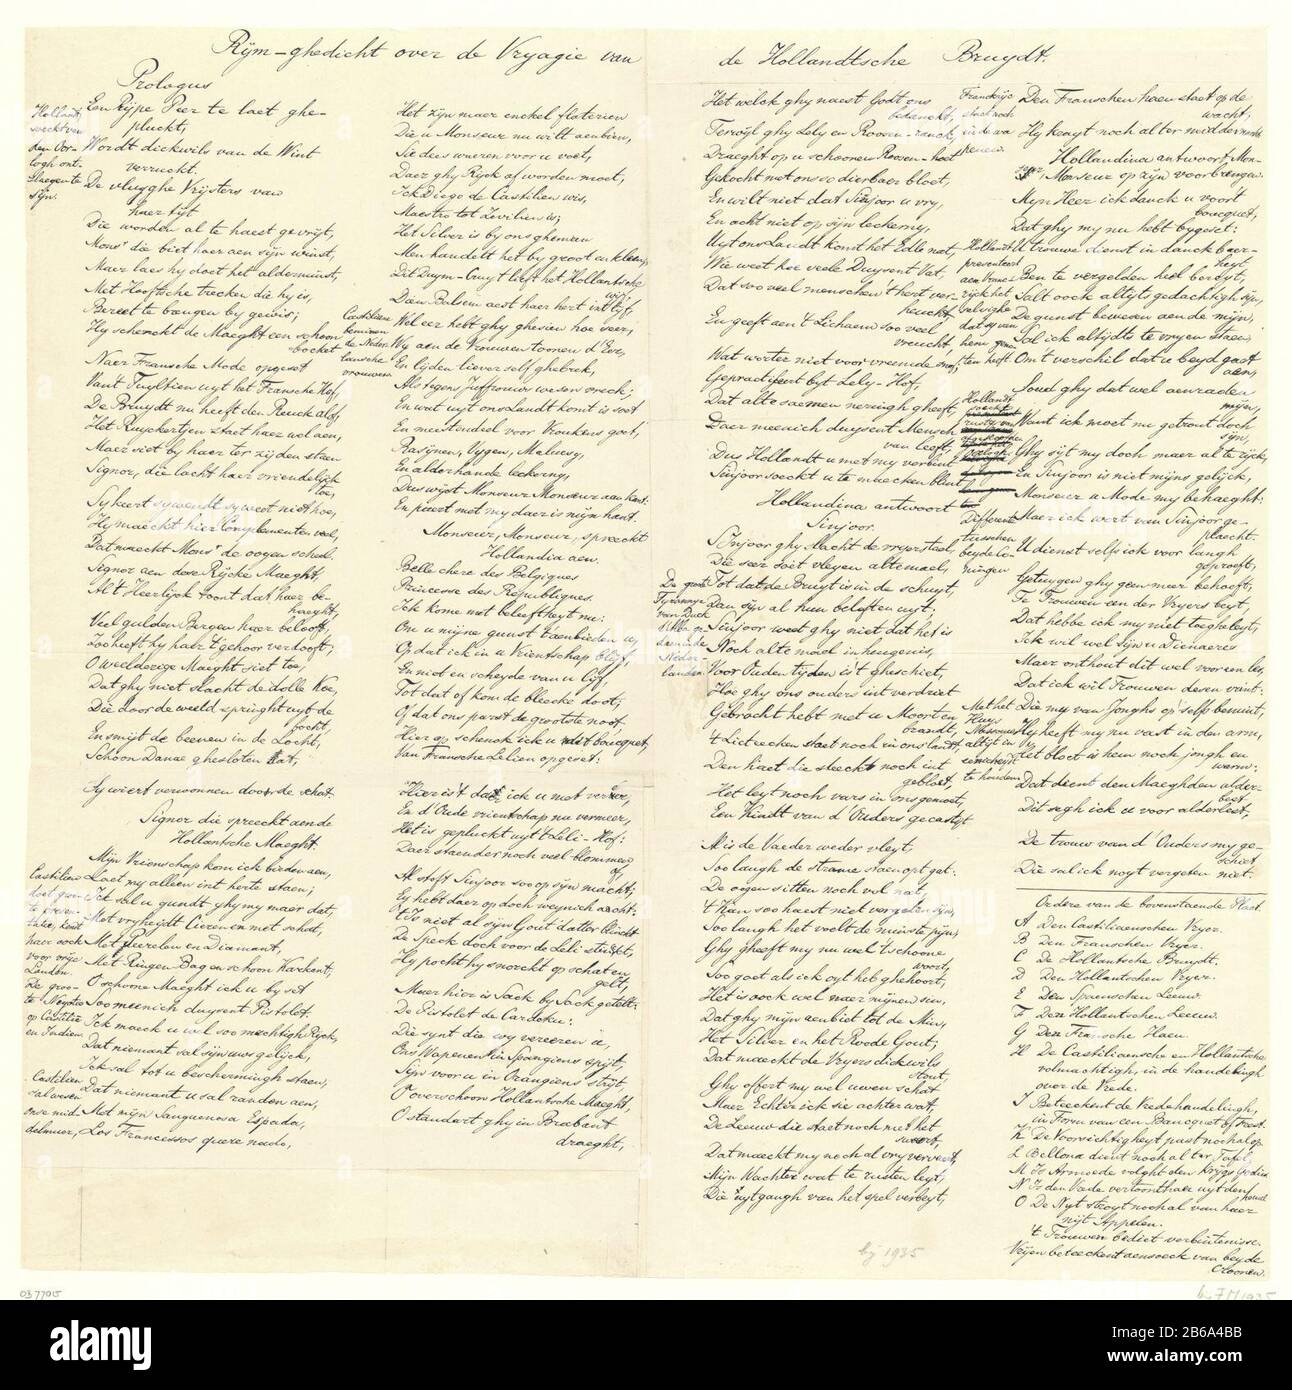 Rÿm-ghedicht over de Vryagie van de Hollandtsche Bruydt.
Prologus
Een Rÿpe Peer te laet ghe-
pluckt,
Wordt dickwils van de Wint
verruckt.
De vluyghe Vrÿsters van
haer tÿt
Die worden al te haest gevrÿt,
Monsr die biet haer aen sÿn winst,
Maer laes hÿ doet het alderminst,
Met Hooftsche trecken die hÿ is,
Bereet te bangen by gewis;
Hÿ schenckt de Maeght een schoon
bocket
Naer Fransche Mode opgeset
Vant Tuylthien uyt het Fransche Hof,
De Bruydt nu heeft den Reuck alof,
Het Ruyckertjen staet haer wel aen,
Maer siet by haer ter zyden staen
Signor, die lacht haer vriendelÿck
toe,
Sy keert sy wendt sy weet niet hoe,
Hy maeckt hier Complementen veel,
Dat maeckt Monsr de oogen scheel.
Signor aen dese Rÿcke Maeght,
Al 't Heerlÿck toont dat haer be-
haeght,
Veel gulden Bergen haer belooft,
Zoo heeft hy haer t'gehoor verdooft,
O weelderige Maeght siet toe,
Dat ghy niet slacht de dolle Koe,
Die door de weeld springht uyt de
bocht,
En smÿt de beenen in de Locht,
Schoon Danae ghesloten sat,
Sy wiert verwonnen door de schat.
Signor die spreeckt aen de
Hollantsche Maeght.
Mÿn Vrienschap kom ick bieden aen,
Laet my alleen int herte staen;
Ick sal u gundt ghy my maer dat,
Met vryheydt Cieren en met schat,
Met Peerelen en Diamant,
Met Ringen Bag en schoon Karckant,
O schoone Maeght ick u by set
Soo meenich duysent Pistolet.
Ick maeck u wel soo machtigh Rÿck,
Dat niemant sal sÿn uws gelÿck,
Ick sal tot u bescherminge staen,
Dat niemant u sal randen aen,
Met mÿn Sanguenosa Espada,
Los Francessos quere nado,
Hollant
soeckt van
den Oor-
logh ont-
slagen te
sÿn.
Het zÿn maer enckel flaterien
Die u Monseur nu wilt aenbien,
Sie dees waeren voor u voet,
Daer ghy Rÿck af worden moet,
Ick Diego de Castilien wis,
Maestro tot Sevilien is;
Het Silver is by ons ghemeen
Men handelt het by groot en kleen,
Dit Duym-Cruyt lieft het Hollantsche
wÿf,
Dien Balsem aest haer hert in lÿf,
Wel eer hebt ghy ghesien hoe seer,
Wy aen de Vrouwen toonen d'Eer,
En lÿden liever self ghebrek,
Als tegens Juffrouw wesen vreck;
En wat uyt ons Landt komt is soet
En meestendeel voor Vroukens goet,
Rasÿnen, Vygen, Malvesy,
En alderhande leckerny,
Dus wÿst Monseur Monseur aen kant:
En paert met my daer is mÿn hant.
Monseur, Monseur, spreeckt
Hollandia aen.
Belle chere des Belgiques
Princesse des Républiques.
Ick kome met beleeftheyt nu:
Om u mÿne gunst t'aenbieden u,
Op dat ick in u Vrientschap blÿf,
En niet en scheyde van u Lÿf,
Tot dat of kom de bleecke doot;
Of dat ons parst de grootste noot.
Hier op schenck ick u met boucquet,
Van Fransche Lelien opgeset:
Hier is't dat ick u met vereer,
En d'Oude vrientschap nu vermeer,
Het is gepluckt uyt 't Leli-Hof:
Daer staender noch veel blommen
of,
Al stoft Sinjoor soo op sÿn macht;
Ey hebt daer op doch weynich acht:
't Is niet al sÿn Gout datter blinckt
De Speck doch voor de Leli stinckt,
Hy pocht hy snorckt op schat en
gelt,
Maer hier is Sack by Sack getelt:
De Pistolet de Cardeku:
Die synt die wy vereeren u,
Ons Wapenen in Spangiens spÿt,
Sÿn voor u in Orangiens strÿt,
O overschoon Hollantsche Maeght,
O standart ghy in Brabant
draeght,
Het welck ghy naest Godt ons
bedanckt,
Terwÿl ghy Lely en Roosen-ranck
Draeght op u schoonen Roosen-hoet
Gekocht met ons so dierbaer bloet,
En wilt niet dat Sinjoor u vry,
En acht niet op sÿn leckerny,
Uyt ons Landt komt het Edle nat,
Wie weet hoe veele Duysent Vat,
Dat soo veel menschen 't hert ver-
heucht,
En geeft aen 't Lichaem soo veel
vreucht
Wat worter niet voor vreemde stof,
Gepractiseert byt Lely-Hof,
Dat alte saemen neringh gheeft,
Daer meenich duysent Mensch
van leeft,
Dus Hollandt u met my verbint
Sinjoor soeckt u te maecken blint.
Hollandina antwoort
Sinjoor.
Sinjoor ghy slacht de vryers t'eel,
Die seer soet vleyen altemael,
Tot dat de Bruyt is in de schuyt,
Dan sÿn al hun beloften uyt:
Sinjoor weet ghy niet dat het is
Noch altemael in heugenis,
Voor Ouden tÿden is't gheschiet,
Hoe ghy ons ouders int verdriet
Gebracht hebt met u Moort en
brandt,
't Licteecken staet noch in ons landt,
Den haet die steeckt noch int
gebloet,
Het leyt noch vars in ons gemoet,
Een Kindt van d'Ouders gecastÿt
Al is de Vaeder weder vleyt,
Soo laugh de straeme staen opt gat:
De oogen sitten noch vol nat,
't Kan soo haest niet vergeten sÿn,
Soo laugh het voelt de minste pÿn,
Ghy gheeft my nu wel 't schoone
woort,
Soo goet als ick oyt heb ghehoort,
Het is oock wel naer mÿnen sin,
Dat ghy mÿn aenbiet tot de Min,
Het Silver en het Roode Gout;
Dat maeckt de Vryers dickwils
stout,
Ghy offert my wel uwen schat
Maer Echter ick sie achter wat,
De Leeuw die staet noch met het
swaert,
Dat maeckt my noch al vry verveert,
Mÿn Wachter wat te rusten leyt,
Die uytgangh van het spel verbeyt,
Den Franschen haen staet op de
wacht,
Hy kraeyt noch al ter middernacht
Hollandina antwoort Mon-
seur, Monseur op zÿn voorbrengen.
Mÿn Heer ick danck u voort
boucquet,
Dat ghy my nu hebt bygeset:
U trouwe dienst in danckbaer-
heyt
Ben te vergelden heel bereyt,
Salt oock altyts gedachtigh sÿn,
De gunst bewesen aen de mÿn,
Sal ick altÿdts te vryen staen,
Om't verschil dat u beyd gaet
aen,
Soud ghy dat wel aenraden
mÿn,
Want ick moet nu getrout doch
sÿn,
Ghy sÿt my doch maer al te rÿck,
En Sinjoor is niet mÿns gelÿck,
Monseur u Mode my behaeght:
Maer ick wert van Sinjoor ge-
plaecht.
U dienst self sick voor langh
geprooft,
Getuygen ghy geen meer behoeft,
Te Trouwen een der Vryers beyt,
Dat hebbe ick my niet toegheleyt,
Ick wil wel Sÿn u Dienaeres
Maer onthout dit wel voor een les,
Dat ick wil Trouwen desen vant:
Die my van Jonghs op self bemint,
Hy heeft my nu vast in den arm,
Het bloet is hem noch jongh en
warm:
Dat dient den Maeghden alder-
best
Dit segh ick u voor alderlest,
De trouw van d'Ouders my ge-
schiet
Die sal ick noyt vergeten niet.
Ordere van de bovenstaende Plaet.
A Den Castiliaenschen Vryer.
B Den Franschen Vryer.
C De Hollantsche Bruydt.
D Den Hollantschen Vryer.
E Den Spaenschen Leeuw.
F Den Hollantschen Leeuw.
G Den Fransche Haen
H De Castiliaensche en Hollantsche
volmachtigh, in de handelingh
over de Vrede.
I Beteeckent de Vredehandelingh,
in Form van een Bancquet of Feest.
K De Voorsichtigheyt past noch al op
L Bellona dient noch al ter Tafel,
M Is Armoede volght den Krÿgs Godin
N Is den Vrede vertoont haer uyt den hemel
O De Nyt stroyt noch al van haer
nÿt Appelen.
't Trouwen bediet verbintenisse.
Vrÿen beteeckent aensoeck van beyde
Croonen.
bij 1935
0377915
alamy
Image ID: 2B6A4BB
www.alamy.com